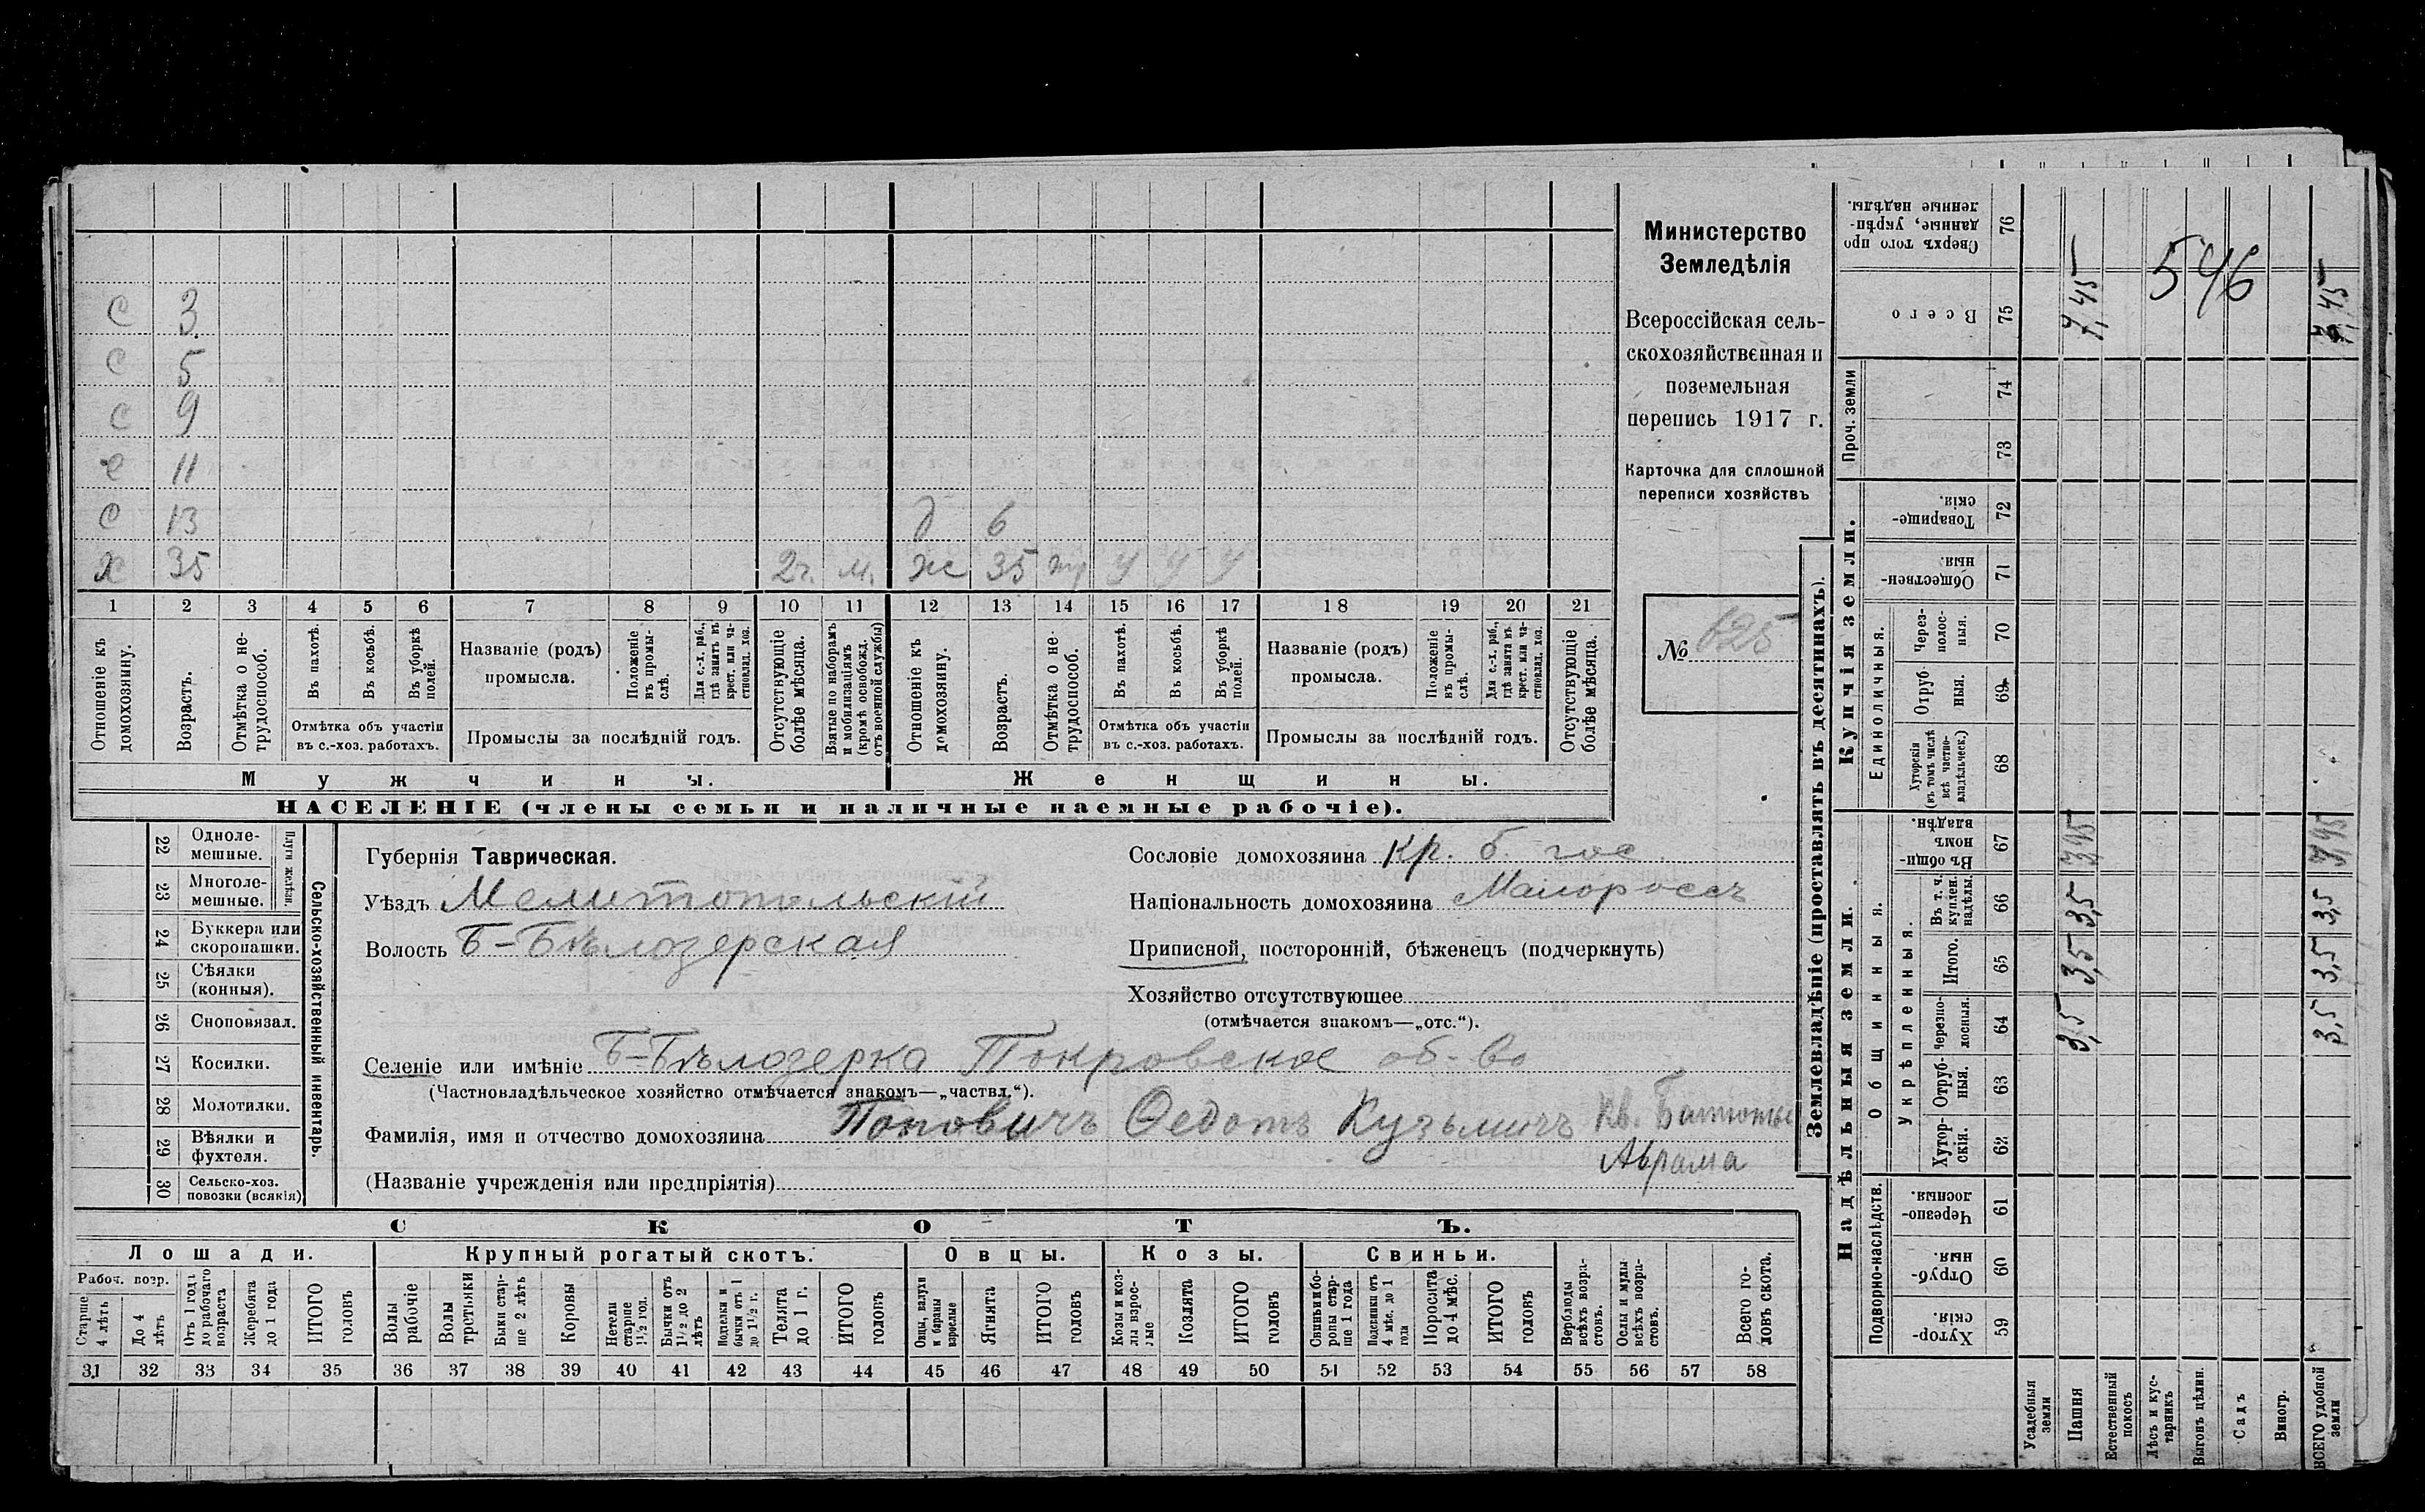 С 3
С 5
С 9
С 11
С 13 д 6
Х 35 2 г. м. ж 35 тр у у у
1 2 3 4 5 6 7 8 9 10 11 12 13 14 15 16 17 18 19 20 21
Отношеніе къ домохозяину.
Возрастъ.
Отмѣтка о нетрудоспособ.
Въ пахотѣ.
Въ косьбѣ.
Въ уборкѣ полей.
Отмѣтка объ участіи
въ с.-хоз. работахъ.
Названіе (родъ)
промысла.
Положеніе въ промыслѣ.
Для с.-х. раб., гдѣ занятъ въ крест. или частновлад. хоз.
Промыслы за послѣдній годъ.
Отсутствующіе болѣе мѣсяца.
Взятые по наборамъ и мобилизаціямъ (кромѣ освобожд. отъ военной службы)
Отношеніе къ домохозяину.
Возрастъ.
Отмѣтка о нетрудоспособ.
Въ пахотѣ.
Въ косьбѣ.
Въ уборкѣ полей.
Отмѣтка объ участіи
въ с.-хоз. работахъ.
Названіе (родъ)
промысла.
Положеніе въ промыслѣ.
Для с.-х. раб., гдѣ занята въ крест. или частновлад. хоз.
Промыслы за послѣдній годъ.
Отсутствующіе болѣе мѣсяца.
Мужчины. Женщины.
НАСЕЛЕНІЕ (члены семьи и наличные наемные рабочіе).
Министерство
Земледѣлія
Всероссійская сель-
скохозяйственная и
поземельная
перепись 1917 г.
Карточка для сплошной
переписи хозяйствъ
№ 625
Сельско-хозяйственный инвентарь.
Плуги желѣзн.
22 Одноле-
мешные.
23 Многоле-
мешные.
24 Буккера или
скоропашки.
25 Сѣялки
(конныя).
26 Сноповязал.
27 Косилки.
28 Молотилки.
29 Вѣялки и
фухтеля.
30 Сельско-хоз.
повозки (всякія)
Губернія Таврическая.
Уѣздъ Мелитопольскій
Волость Б-Бѣлозерская
Сословіе домохозяина кр. б. гос.
Національность домохозяина Малороссъ
Приписной, посторонній, бѣженецъ (подчеркнуть)
Хозяйство отсутствующее
(отмѣчается знакомъ—„отс.“).
Селеніе или имѣніе Б-Бѣлозерка Покровское об-во
(Частновладѣльческое хозяйство отмѣчается знакомъ—„частвл.“).
Фамилія, имя и отчество домохозяина Поповичъ Ѳедотъ Кузьмичъ кв.
Аврама
(Названіе учрежденія или предпріятія)
СКОТЪ.
Лошади. Крупный рогатый скотъ. Овцы. Козы. Свиньи.
Рабоч. возр.
Старше 4 лѣтъ
До 4 лѣтъ
Отъ 1 года до рабочаго возраста
Жеребята до 1 года
ИТОГО головъ
Волы рабочіе
Волы третьяки
Быки старше 2 лѣтъ
Коровы
Нетели старше 1½ год.
Бычки отъ 1½ до 2 лѣтъ
Подтелки и бычки отъ 1 до 1½ г.
Телята до 1 г.
ИТОГО головъ
Овцы, валухи и бараны взрослые
Ягнята
ИТОГО головъ
Козы и козлы взрослые
Козлята
ИТОГО головъ
Свиньи и боровы старше 1 года
Подсвинки отъ 4 мѣс. до 1 года
Поросята до 4 мѣс.
ИТОГО головъ
Верблюды всѣхъ возрастовъ.
Ослы и мулы всѣхъ возрастовъ.
Всего головъ скота.
31 32 33 34 35 36 37 38 39 40 41 42 43 44 45 46 47 48 49 50 51 52 53 54 55 56 57 58
Землевладѣніе (проставлять въ десятинахъ).
Надѣльныя земли.
Купчія земли.
Проч. земли
Сверхъ того проданные, укрѣпленные надѣлы. 76
Всего 75 7,45 7,45
546
74
73
Товарищескія. 72
Общественныя. 71
Единоличныя.
Черезполосныя. 70
Отрубныя. 69
Хуторскія (въ томъ числѣ всѣ частновладѣльческ.) 68
Общинныя.
Въ общинномъ владѣн. 67
Укрѣпленныя.
Въ т. ч. куплен. надѣлы. 66 3,5 3,5
Итого. 65 3,5 3,5
Черезполосныя. 64 3,5 3,5
Отрубныя. 63
Хуторскія. 62
Подворно-наслѣдств.
Черезполосныя. 61
Отрубныя. 60
Хуторскія. 59
Усадебныя земли
Пашня
Естественный покосъ
Лѣсъ и кустарникъ
Выгонъ цѣлин.
Садъ
Виногр.
ВСЕГО удобной земли